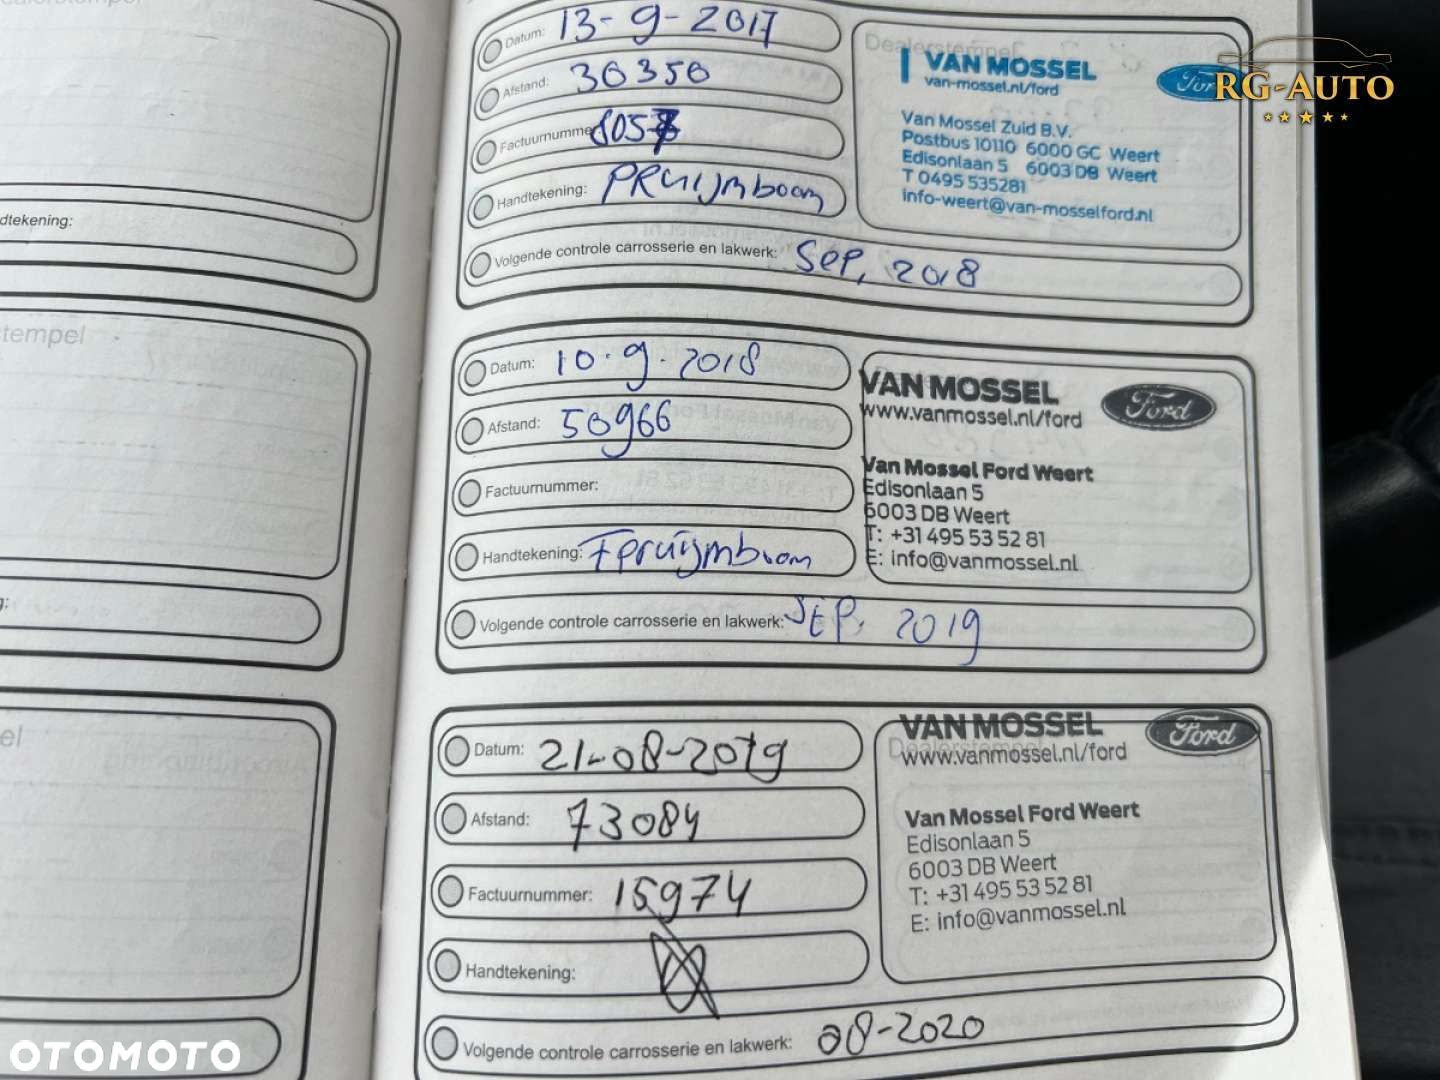 Dealerstempel
dtekening:
stempel
g:
el
Datum: 13-9-2017
Afstand: 30350
Factuurnumme
Handtekening: PRuijmboom
Volgende controle carrosserie en lakwerk: Sep, 2018
Dealerstempel
VAN MOSSEL
van-mossel.nl/ford
Ford
Van Mossel Zuid B.V.
Postbus 10110 6000 GC Weert
Edisonlaan 5 6003 DB Weert
T 0495 535281
info-weert@van-mosselford.nl
RG-AUTO
Datum: 10-9-2018
Afstand: 50966
Factuurnummer:
Handtekening: Fpruijmboom
Volgende controle carrosserie en lakwerk: SEP, 2019
VAN MOSSEL
www.vanmossel.nl/ford
Ford
Van Mossel Ford Weert
Edisonlaan 5
6003 DB Weert
T: +31 495 53 52 81
E: info@vanmossel.nl
Datum: 21-08-2019
Afstand: 73084
Factuurnummer: 15974
Handtekening:
Volgende controle carrosserie en lakwerk: 08-2020
Dealerstempel
VAN MOSSEL
www.vanmossel.nl/ford
Ford
Van Mossel Ford Weert
Edisonlaan 5
6003 DB Weert
T: +31 495 53 52 81
E: info@vanmossel.nl
OTOMOTO